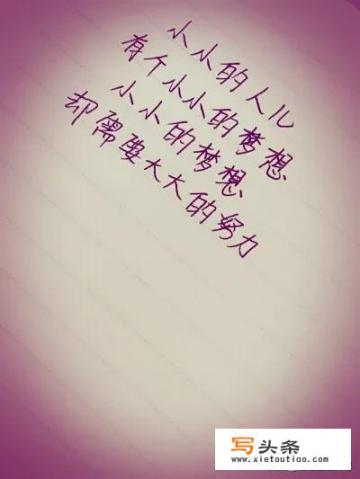 小小的人儿
有个小小的梦想
小小的梦想
却需要大大的努力
写头条
www.xietoutiao.com